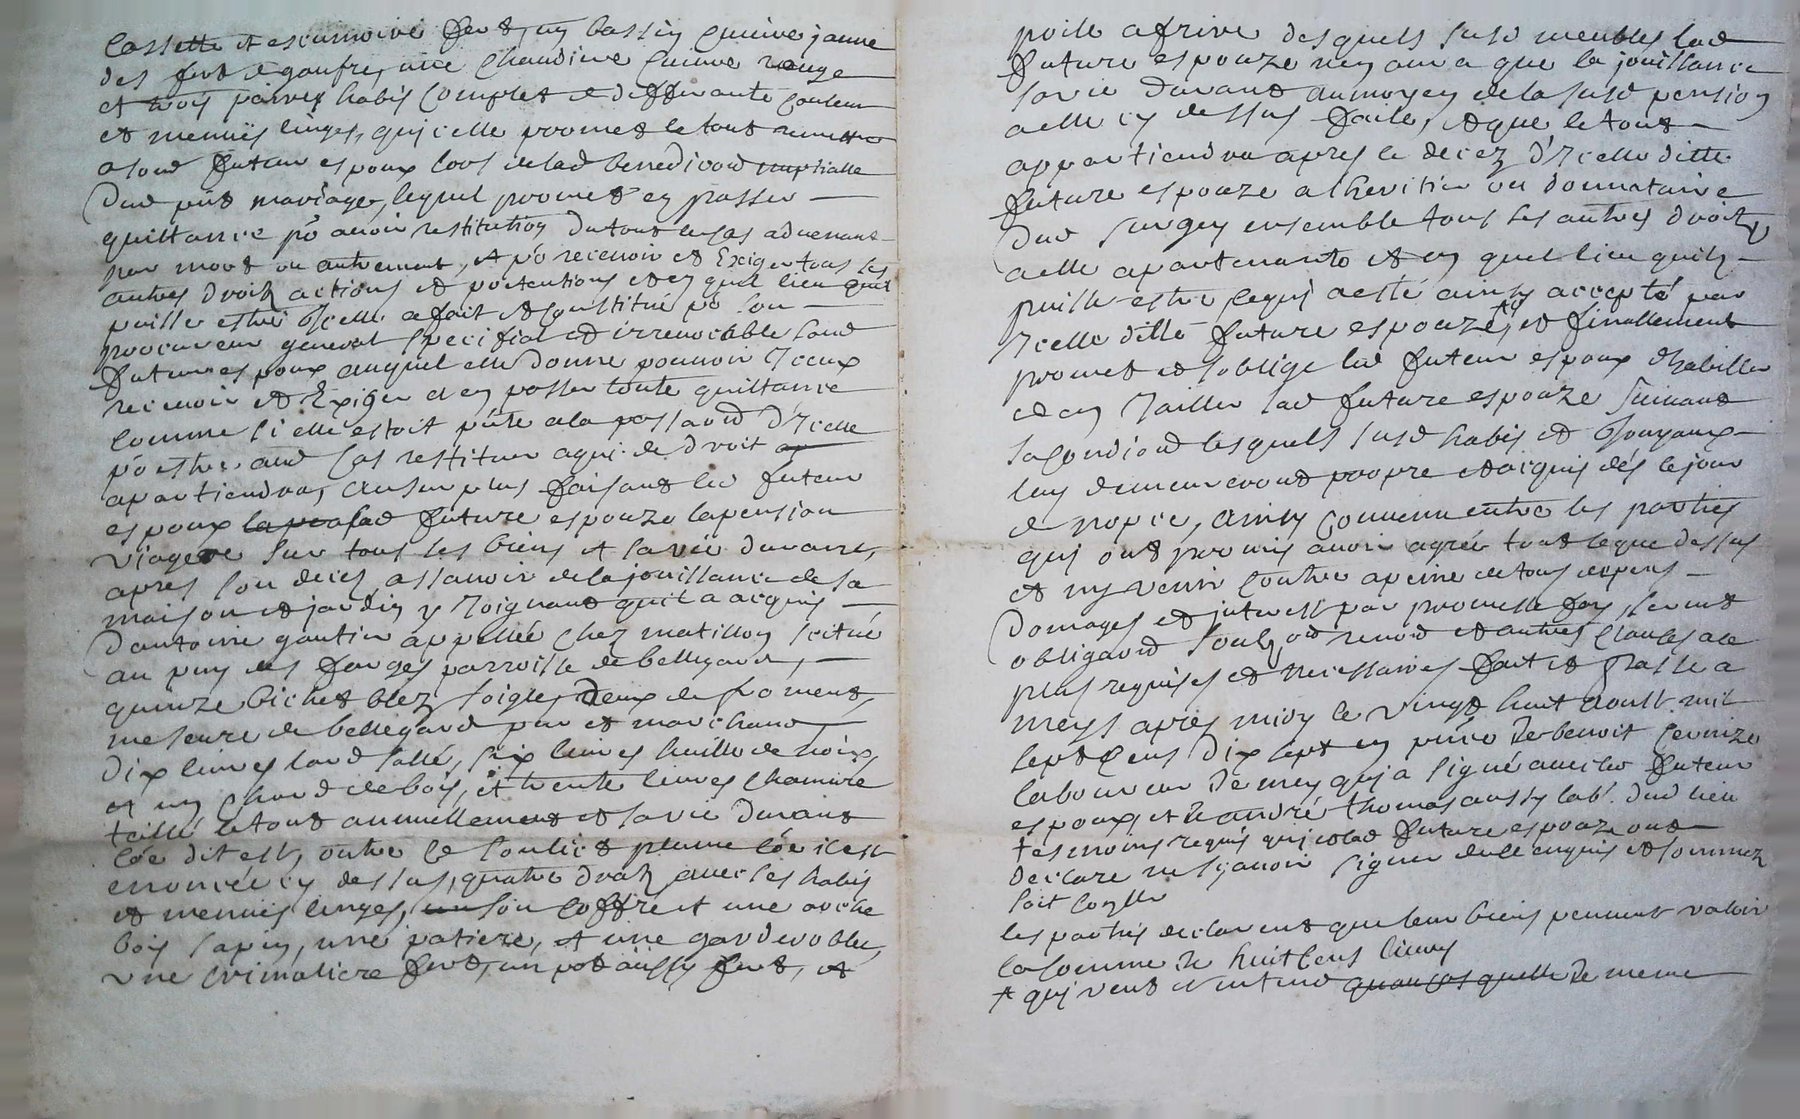 Cassette et escumoire fert, un bassin cuivre jaune
des fert a gaufre, une chaudiere cuivre rouge
et trois paires habis complet de differante couleur
et menuës linges, qu'icelle promet le tout remettre
a sond futeur espoux lors de lad benediction nuptialle
dud pnt mariage, lequel promet en passer
quittance po avoir restitution du tout le cas advenant
par mort ou autrement, et po recevoir et Exiger tous les
autres droits actions et pretentions et en quel lieu quil
puille estre Icelle a fait et constitué po son
procureur general special et irrevocable sond
futeur espoux auquel elle donne pouvoir Iceux
recevoir et Exiger et en passer toute quittance
comme si elle estoit pnte a la passaond d'Icelle
po estre aud cas restituer a qui de droit
apartiendra, au surplus faisant led futeur
espoux la pr a sad future espouze la pension
viagere sur tous ses biens et sa vie durant,
apres son deces assavoir de la jouissance de sa
maison et jardin y Joignant quil a acquis
d'antoine gautier appellée chez matillon scitué
au puy des farges parroisse de bellegard,
quinze bichet blez soigle, deux de froment,
mesure de bellegard pur et marchand
dix livres lard sallé, six livres huille de noix,
et un chard de bois, et trente livres chamvre
teillé le tout annuellement et sa vie durant
côe dit est, outre le soulict plume côe il est
enoncée cy dessus, quatre drat avec ses habis
et menuës linges, son coffre et une arche
bois sapin, une patiere, et une garderobbe,
une crimaliere fert, un pot aussy fert, et
poile a frire desquels susd meubles lad
future espouze n'en aura que la jouissance
sa vie durant au moyen de la susd pension
a elle cy dessus faite, et que le tout
appartiendra apres le decez d'Icelle ditte
future espouze a l'heritier ou donnataire
dud surgey ensemble tous les autres droits
a elle apartenants et en quel lieu quils
puille estre ce qui a esté ainsy accepté par
Icelle ditte future espouze, et finallement
promet et s'oblige led futeur espoux d'habiller
et en Joailler lad future espouze suivant
sa condiond lesquels susd habis et Jouyaux
luy demeureront propre et acquis dés le jour
de nopce, ainsy convenu entre les parties
qui ont promis avoir agrée tout ce que dessus
et ny venir contre a peine de tous depens
domages et interest par promesse foy serment
obligaond soub, ond renond et autres clauses a ce
plus requises et necessaires fait et passé a
meys apres midy le vingt huit aoust mil
sept cens dix sept en pnce de benoit cervize
laboureur de mey qui a signé avec led futeur
espoux, et d'andré thomas aussy lab. dud lieu
tesmoins requis qui et lad future espouze ont
declare ne sçavoir signer de ce enquis et sommez
soit conlle
les parties declarent que leur biens peuvent valoir
la somme de huit cens livres
+ qui veut et entend quau cas quelle de meme